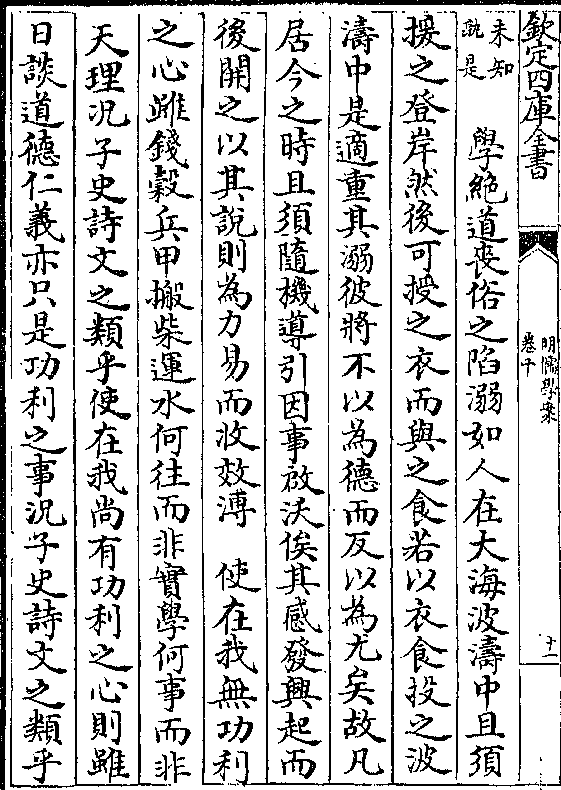 欽定四庫全書
明儒學案
卷十
十二
未知
孰是
學絶道喪俗之陷溺如人在大海波濤中且須
援之登岸然後可授之衣而與之食若以衣食投之波
濤中是適重其溺彼將不以為德而反以為尤矣故凡
居今之時且須隨機導引因事啟沃俟其感發興起而
後開之以其說則為力易而收效溥 使在我無功利
之心雖錢穀兵甲搬柴運水何往而非實學何事而非
天理况子史詩文之類乎使在我尚有功利之心則雖
日談道德仁義亦只是功利之事况子史詩文之類乎